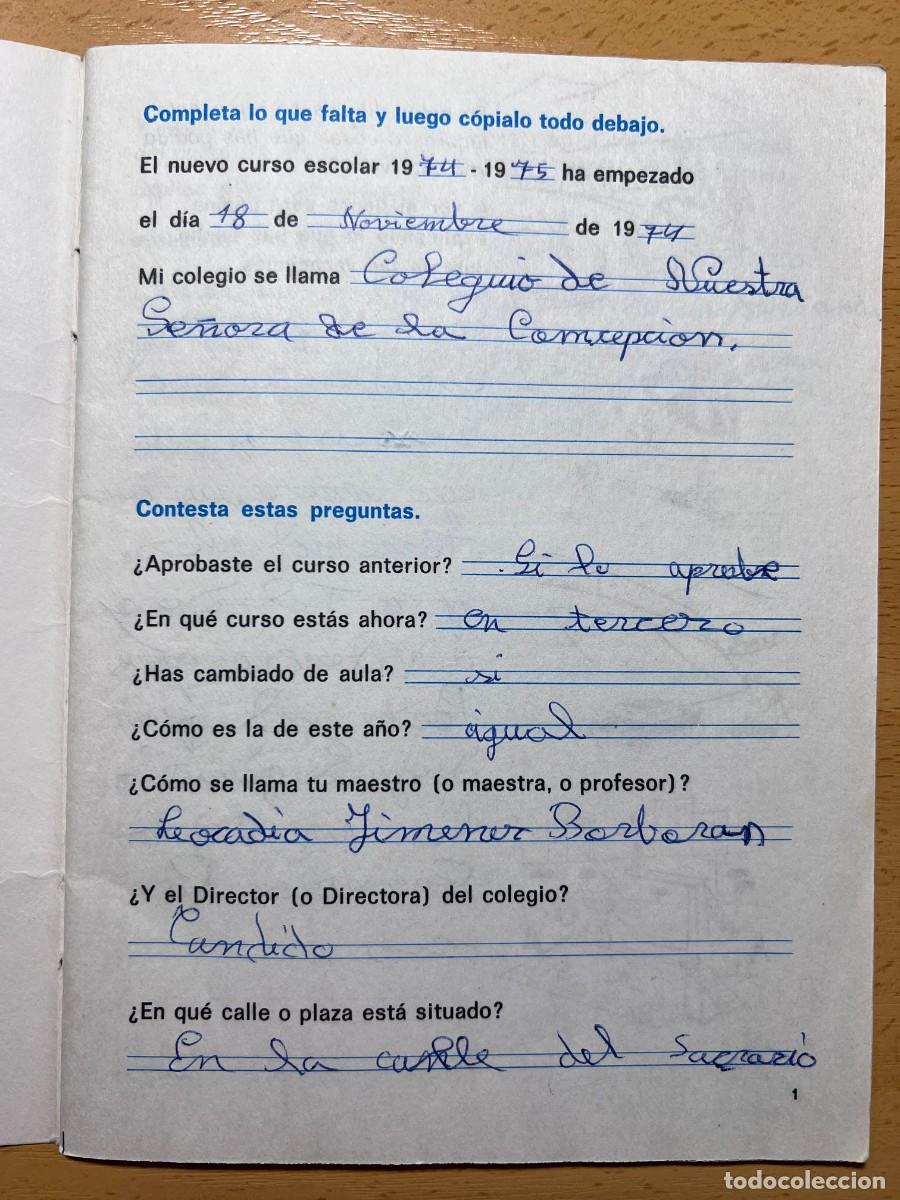 Completa lo que falta y luego cópialo todo debajo.
El nuevo curso escolar 19 74 - 19 75 ha empezado
el día 18 de Noviembre de 19 74
Mi colegio se llama Coleguio de Nuestra
Señora de la Comcepcion.
Contesta estas preguntas.
¿Aprobaste el curso anterior? Si lo aprobe
¿En qué curso estás ahora? en tercero
¿Has cambiado de aula? si
¿Cómo es la de este año? igual
¿Cómo se llama tu maestro (o maestra, o profesor)?
Leocadia Jimener Borboran
¿Y el Director (o Directora) del colegio?
Candido
¿En qué calle o plaza está situado?
En la calle del Sacrario
1
todocoleccion